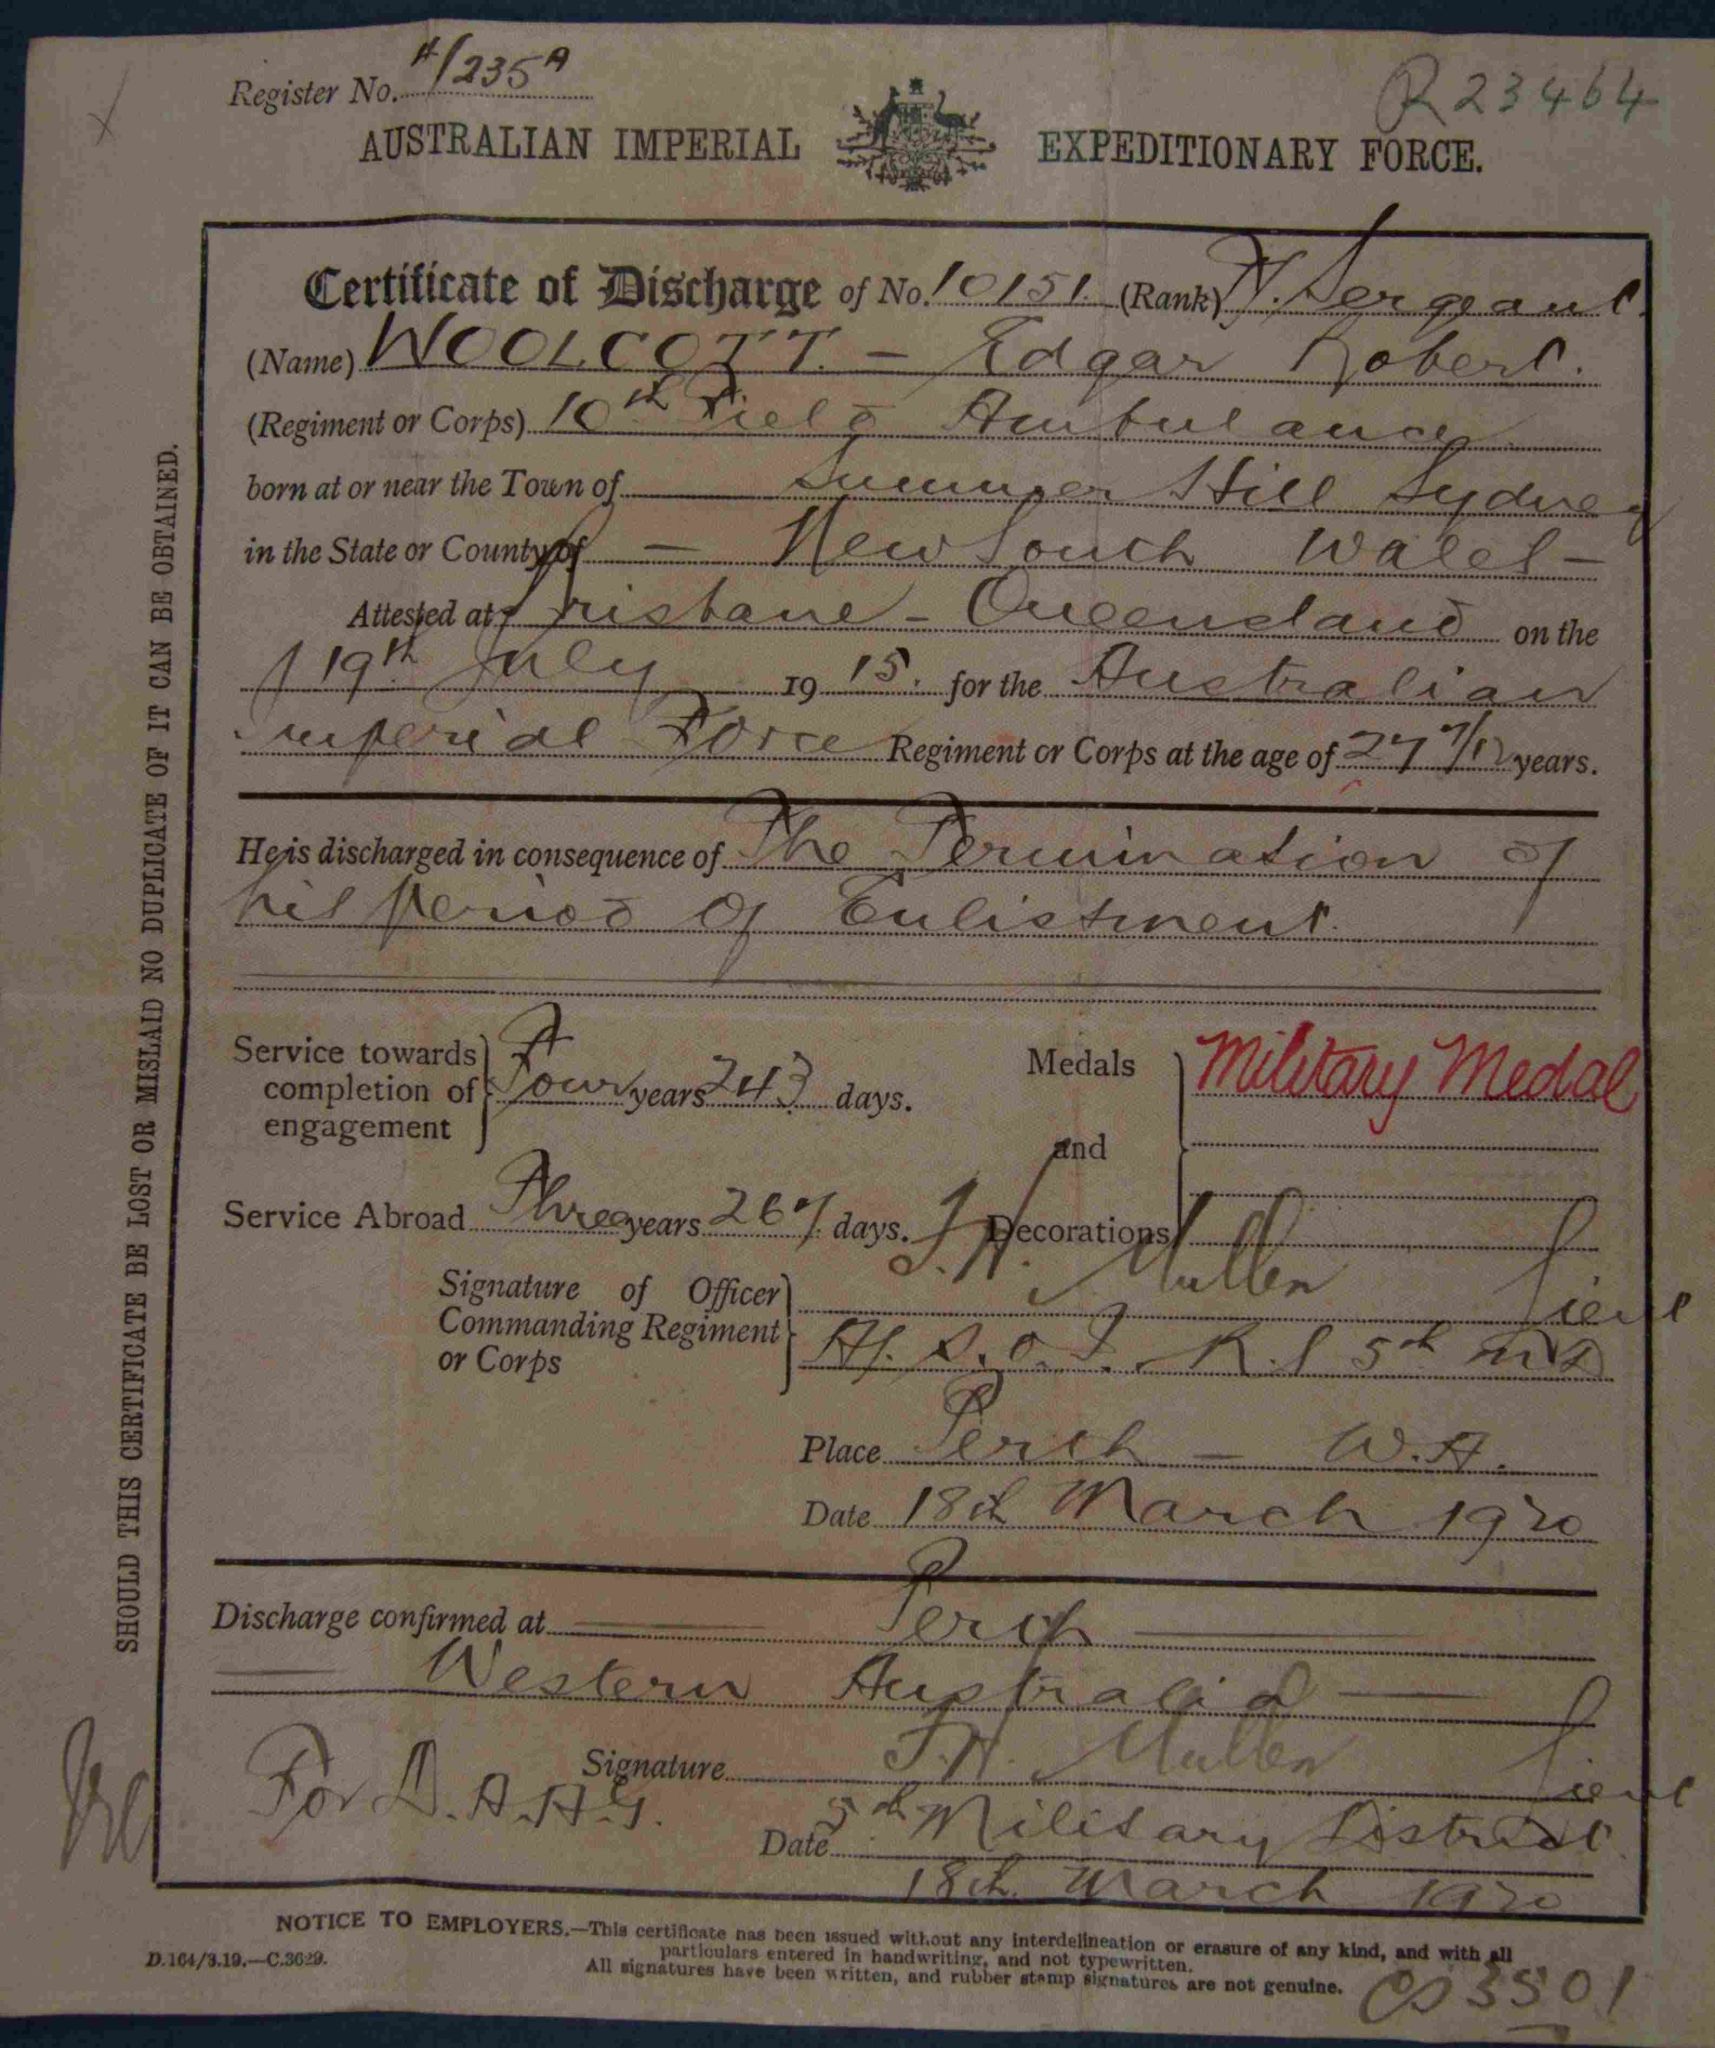 Register No. A/235A
R23464
AUSTRALIAN IMPERIAL EXPEDITIONARY FORCE.
Certificate of Discharge of No. 10151. (Rank) T/. Sergeant.
(Name) WOOLCOTT. — Edgar Robert.
(Regiment or Corps) 10th Field Ambulance
born at or near the Town of Summer Hill Sydney
in the State or County of — New South Wales —
Attested at Brisbane - Queensland on the
19th July 1915. for the Australian
Imperial Force Regiment or Corps at the age of 27 7/12 years.
He is discharged in consequence of The Termination of
his period of Enlistment.
Service towards completion of engagement } Four years 243 days.
Medals and Decorations } Military Medal
Service Abroad Three years 267 days.
Signature of Officer Commanding Regiment or Corps } Mullen Lieut
5th MD
Place Perth — W.A.
Date 18th March 1920
Discharge confirmed at Perth
Western Australia
Signature Mullen Lieut
For D.A.A.G.
Date 5th Military District.
18th March 1920
SHOULD THIS CERTIFICATE BE LOST OR MISLAID NO DUPLICATE OF IT CAN BE OBTAINED.
NOTICE TO EMPLOYERS.—This certificate has been issued without any interdelineation or erasure of any kind, and with all
particulars entered in handwriting, and not typewritten.
All signatures have been written, and rubber stamp signatures are not genuine.
D.164/3.19.—C.3629.
3501